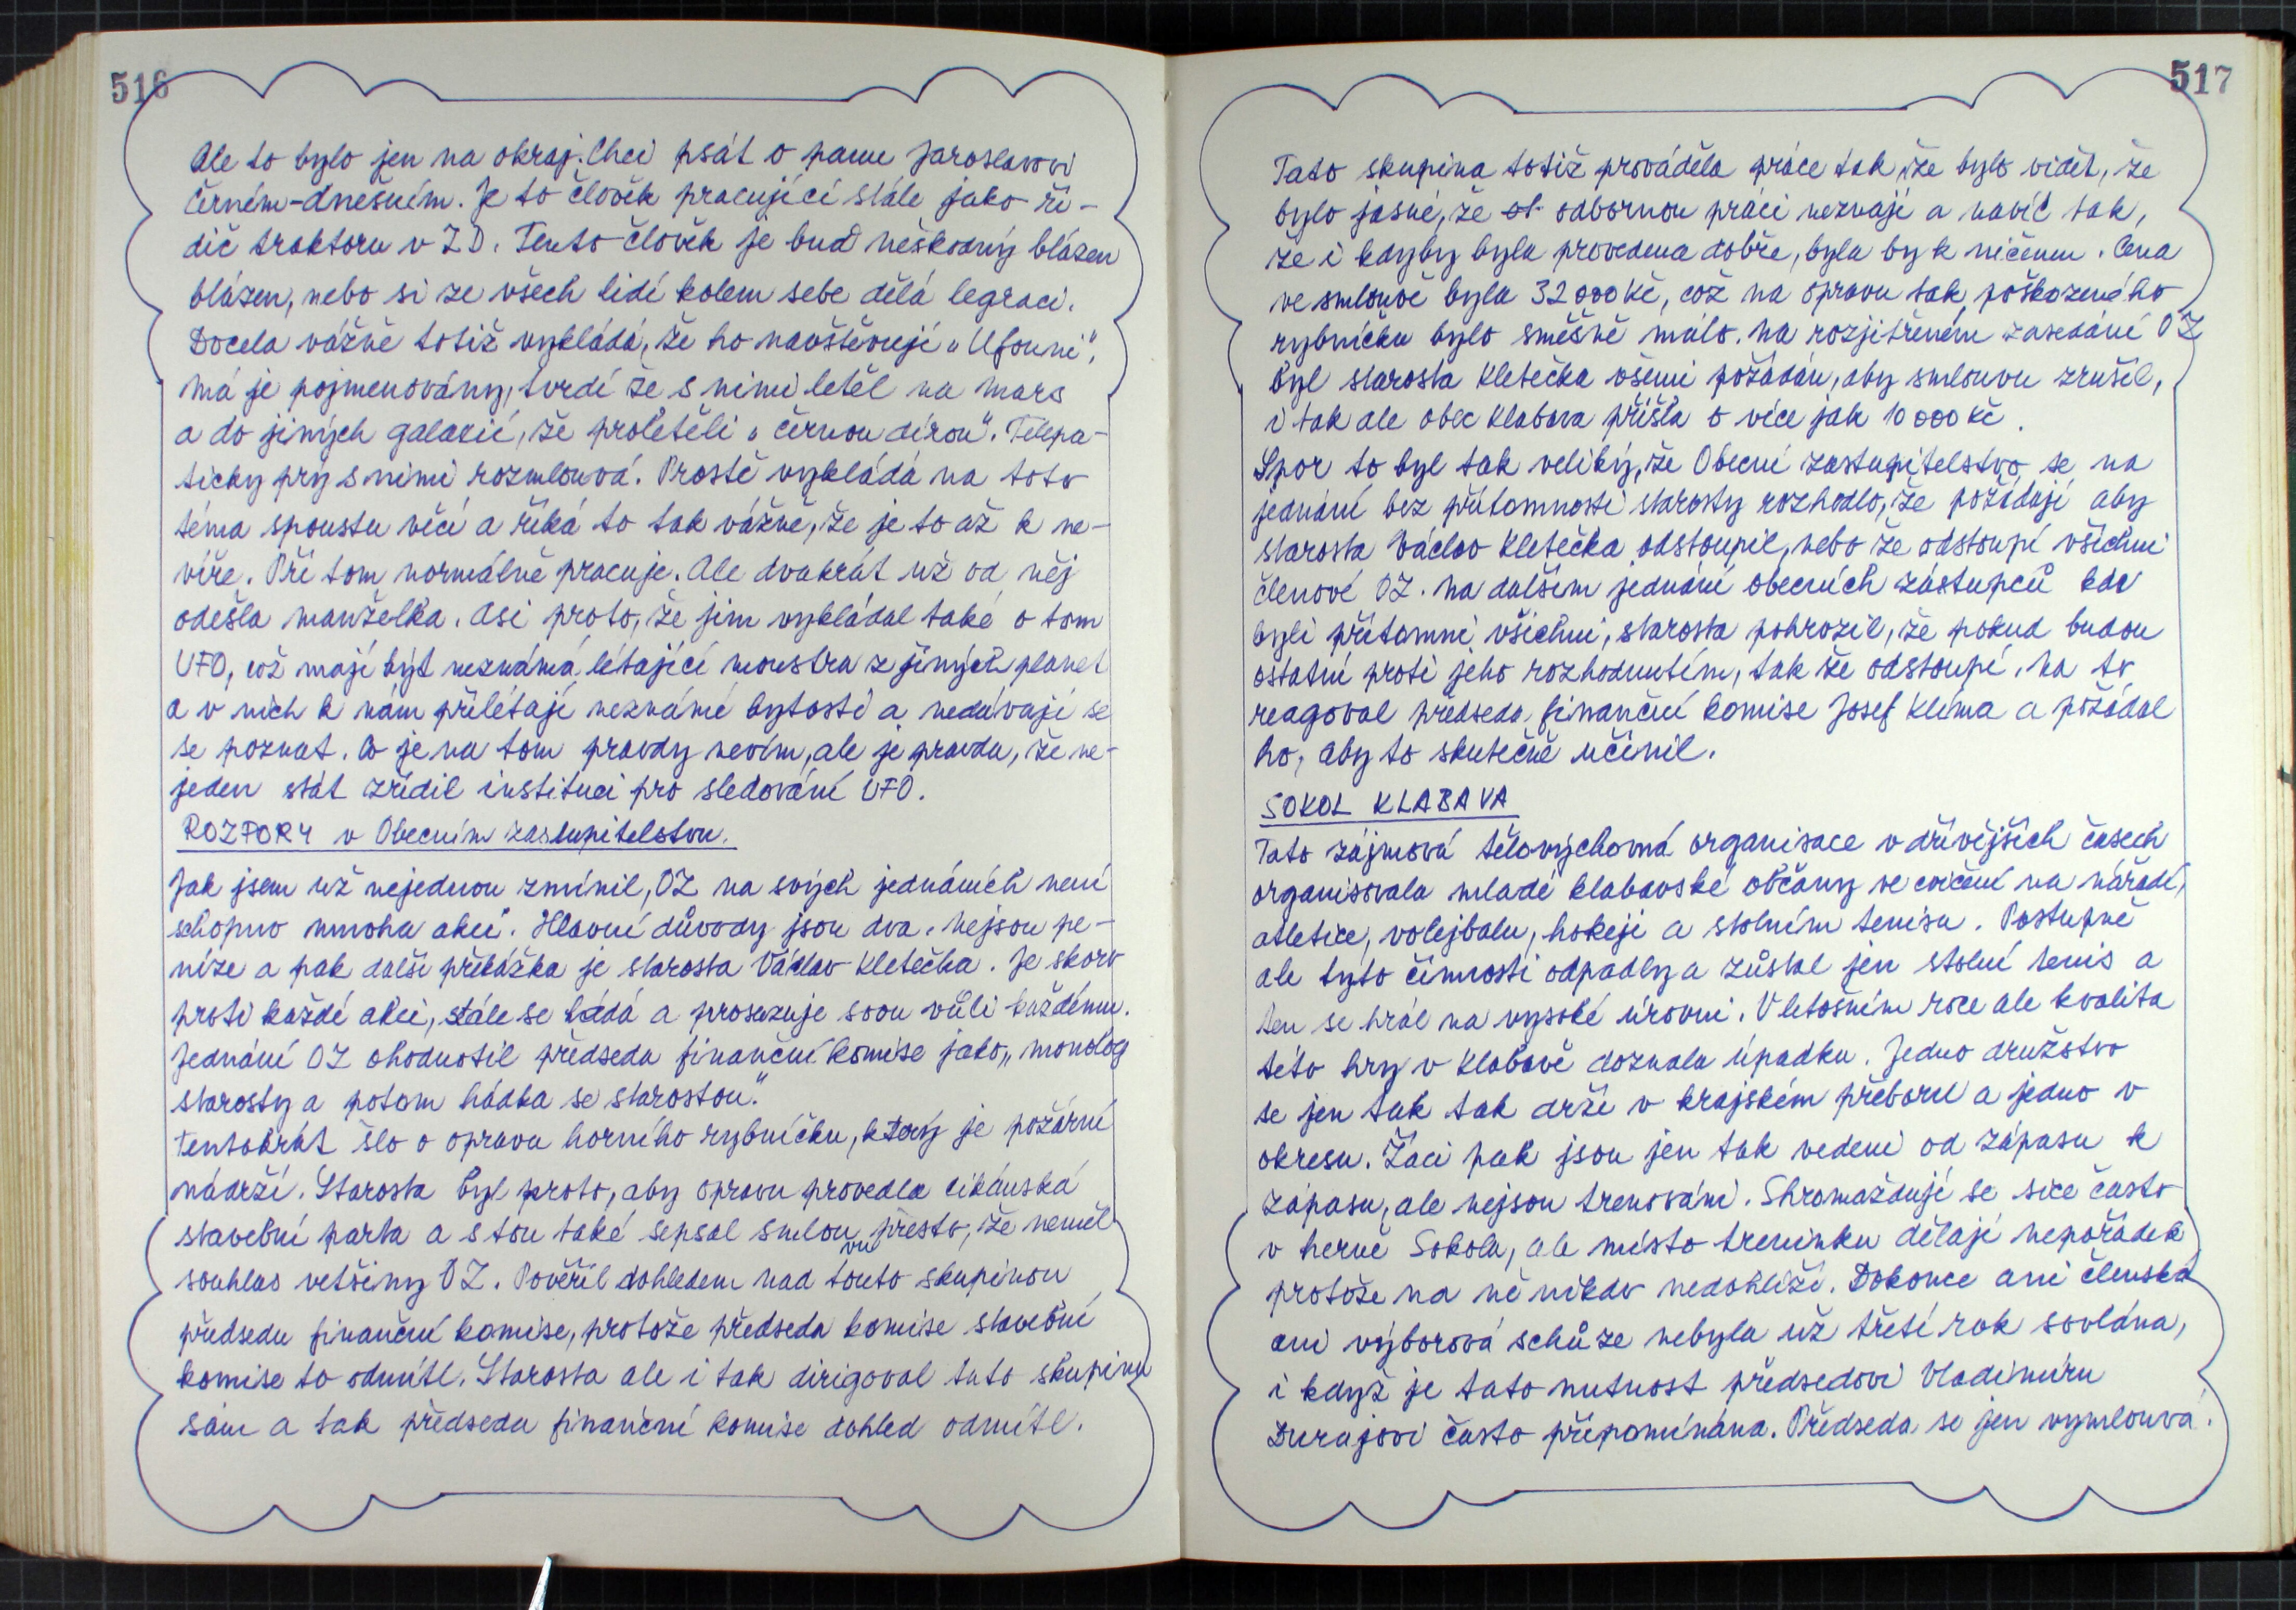 516
Ale to bylo jen na okraj. Chci psát o panu Jaroslavovi
Černém-dnešním. Je to člověk pracující stále jako ři-
dič traktoru v ZD. Tento člověk je buď neškodný blázen
blázen, nebo si ze všech lidí kolem sebe dělá legraci.
Docela vážně totiž vykládá, že ho navštěvují „Ufouni",
má je pojmenovány, tvrdí že s nimi letěl na mars
a do jiných galaxií, že proletěli „černou dírou". Telepa-
ticky prý s nimi rozmlouvá. Prostě vykládá na toto
téma spoustu věcí a říká to tak vážně, že je to až k ne-
víře. Při tom normálně pracuje. Ale dvakrát už od něj
odešla manželka. Asi proto, že jim vykládal také o tom
UFO, což mají být neznámá létající monstra z jiných planet
a v nich k nám přilétají neznámé bytosti a nedávají se
se poznat. Co je na tom pravdy nevím, ale je pravda, že ne-
jeden stát zřídil instituci pro sledování UFO.
ROZPORY v Obecním zastupitelstvu.
Jak jsem už nejednou zmínil, OZ na svých jednáních není
schopno mnoha akcí. Hlavní důvody jsou dva. Nejsou pe-
níze a pak další překážka je starosta Václav Kletečka. Je skoro
proti každé akci, stále se hádá a prosazuje svou vůli každému.
Jednání OZ ohodnotil předseda finanční komise jako „monolog
starosty a potom hádka se starostou."
Tentokrát šlo o opravu horního rybníčku, který je požární
nádrží. Starosta byl proto, aby opravu provedla cikánská
stavební parta a s tou také sepsal smlouvu přesto, že neměl
souhlas vetšiny OZ. Pověřil dohledem nad touto skupinou
předsedu finanční komise, protože předseda komise stavební
komise to odmítl. Starosta ale i tak dirigoval tuto skupinu
sám a tak předseda finanční komise dohled odmítl.
517
Tato skupina totiž prováděla práce tak, že bylo vidět, že
bylo jasné, že odbornou práci neznají a navíc tak,
že i kdyby byla provedena dobře, byla by k ničemu. Cena
ve smlouvě byla 32 000 Kč, což na opravu tak poškozeného
rybníčku bylo směšně málo. Na rozjitřeném zasedání OZ
byl starosta Kletečka všemi požádán, aby smlouvu zrušil,
i tak ale obec Klabava přišla o více jak 10 000 Kč.
Spor to byl tak veliký, že Obecní zastupitelstvo se na
jednání bez přítomnosti starosty rozhodlo, že požádají aby
starosta Václav Kletečka odstoupil, nebo že odstoupí všichni
členové OZ. Na dalším jednání obecních zástupců kde
byli přítomni všichni, starosta pohrozil, že pokud budou
ostatní proti jeho rozhodnutím, tak že odstoupí. Na to
reagoval předseda finanční komise Josef Klíma a požádal
ho, aby to skutečně učinil.
SOKOL KLABAVA
Tato zájmová tělovýchovná organisace v dřívějších časech
organisovala mladé klabavské občany ve cvičení na nářadí,
atletice, volejbalu, hokeji a stolním tenisu. Postupně
ale tyto činnosti odpadly a zůstal jen stolní tenis a
ten se hrál na vysoké úrovni. V letošním roce ale kvalita
této hry v Klabavě doznala úpadku. Jedno družstvo
se jen tak tak drží v krajském přeboru a jedno v
okresu. Žáci pak jsou jen tak vedeni od zápasu k
zápasu, ale nejsou trenováni. Shromažďují se sice často
v herně Sokola, ale místo treninku dělají nepořádek
protože na ně nikdo nedohlíží. Dokonce ani členská
ani výborová schůze nebyla už třetí rok svolána,
i když je tato nutnost předsedovi Vladimíru
Durajovi často připomínána. Předseda se jen vymlouvá.